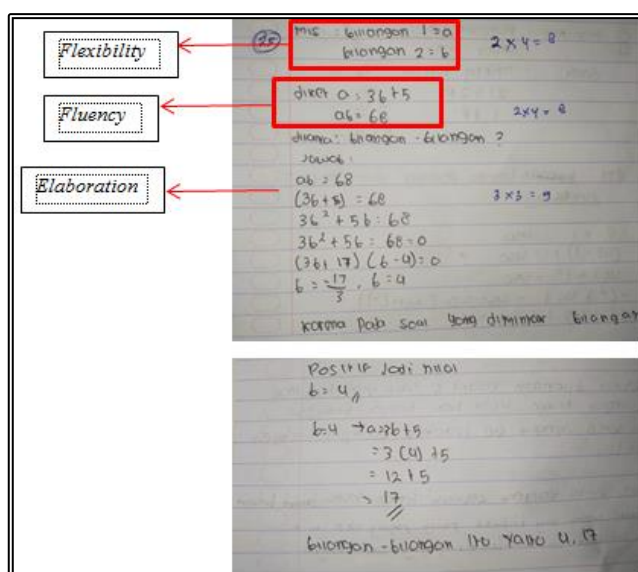 Flexibility
Fluency
Elaboration
25 mis : bilangan 1 = a
bilangan 2 = b
2 x 4 = 8
diket a = 3b+5
ab = 68
2x4 = 8
ditanya: bilangan - bilangan ?
Jawab :
ab = 68
(3b + 5) = 68
3 x 3 = 9
3b² + 5b = 68
3b² + 5b = 68 = 0
(3b+ 17) (b - 4) = 0
b = -17/3 , b = 4
karena pada soal yang diminta bilangan
Positif Jadi nilai
b = 4
b=4 → a=3b+5
= 3 (4) +5
= 12 + 5
= 17
bilangan - bilangan itu yaitu 4, 17